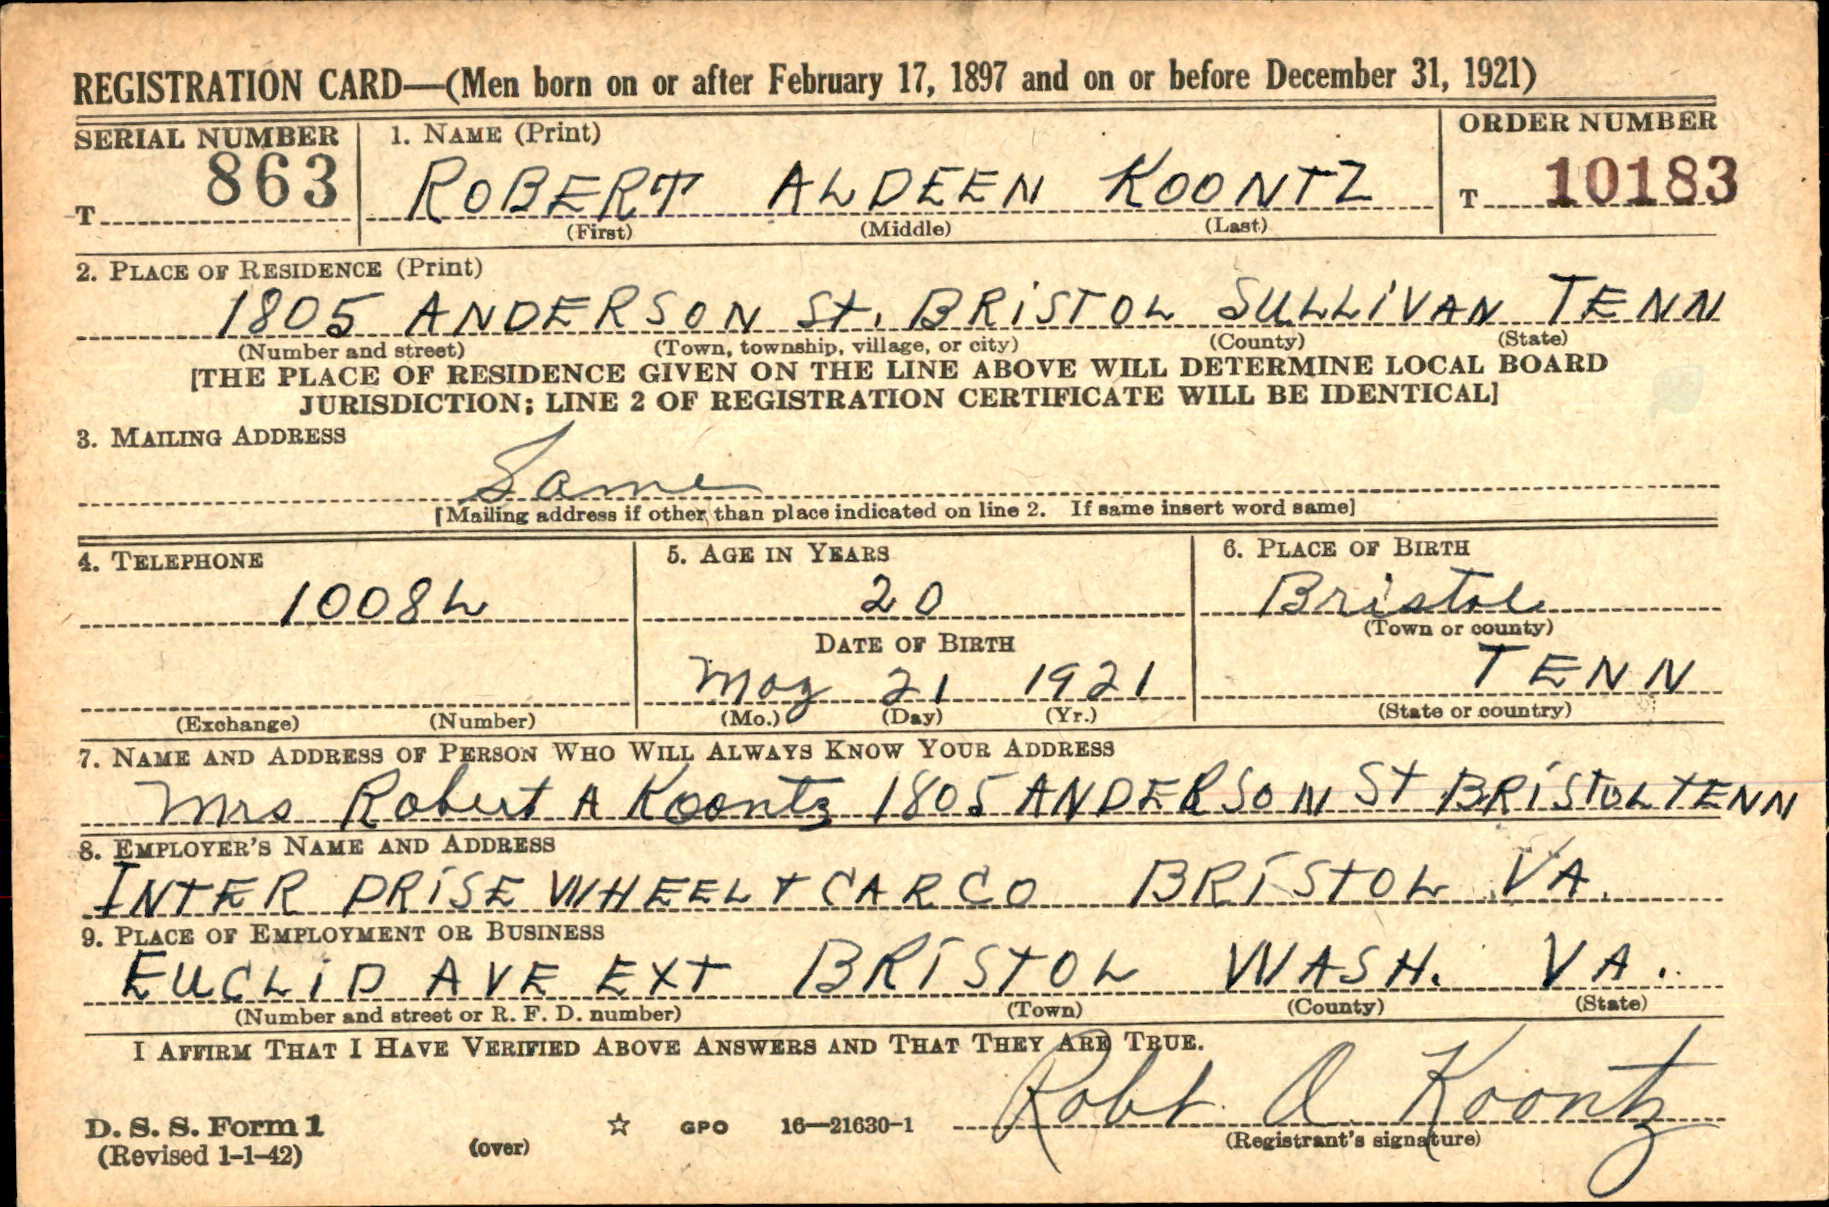 REGISTRATION CARD—(Men born on or after February 17, 1897 and on or before December 31, 1921)
SERIAL NUMBER 1. NAME (Print) ORDER NUMBER
T 863 ROBERT ALDEEN KOONTZ T 10183
(First) (Middle) (Last)
2. PLACE OF RESIDENCE (Print)
1805 ANDERSON St. BRiSTOL SULLiVAN TENN
(Number and street) (Town, township, village, or city) (County) (State)
[THE PLACE OF RESIDENCE GIVEN ON THE LINE ABOVE WILL DETERMINE LOCAL BOARD
JURISDICTION; LINE 2 OF REGISTRATION CERTIFICATE WILL BE IDENTICAL]
3. MAILING ADDRESS
Same
[Mailing address if other than place indicated on line 2. If same insert word same]
4. TELEPHONE 5. AGE IN YEARS 6. PLACE OF BIRTH
1008L 20 Bristol
(Town or county)
DATE OF BIRTH
May 21 1921 TENN
(Exchange) (Number) (Mo.) (Day) (Yr.) (State or country)
7. NAME AND ADDRESS OF PERSON WHO WILL ALWAYS KNOW YOUR ADDRESS
Mrs Robert A Koontz 1805 ANDERSON ST BRiSTOL TENN
8. EMPLOYER'S NAME AND ADDRESS
INTER PRiSE WHEEL + CAR CO BRiSTOL VA.
9. PLACE OF EMPLOYMENT OR BUSINESS
EUCLiD AVE EXT BRiSTOL WASH. VA.
(Number and street or R. F. D. number) (Town) (County) (State)
I AFFIRM THAT I HAVE VERIFIED ABOVE ANSWERS AND THAT THEY ARE TRUE.
Robt. A. Koontz
D. S. S. Form 1
(Revised 1-1-42) (over) ☆ GPO 16—21630-1 (Registrant's signature)